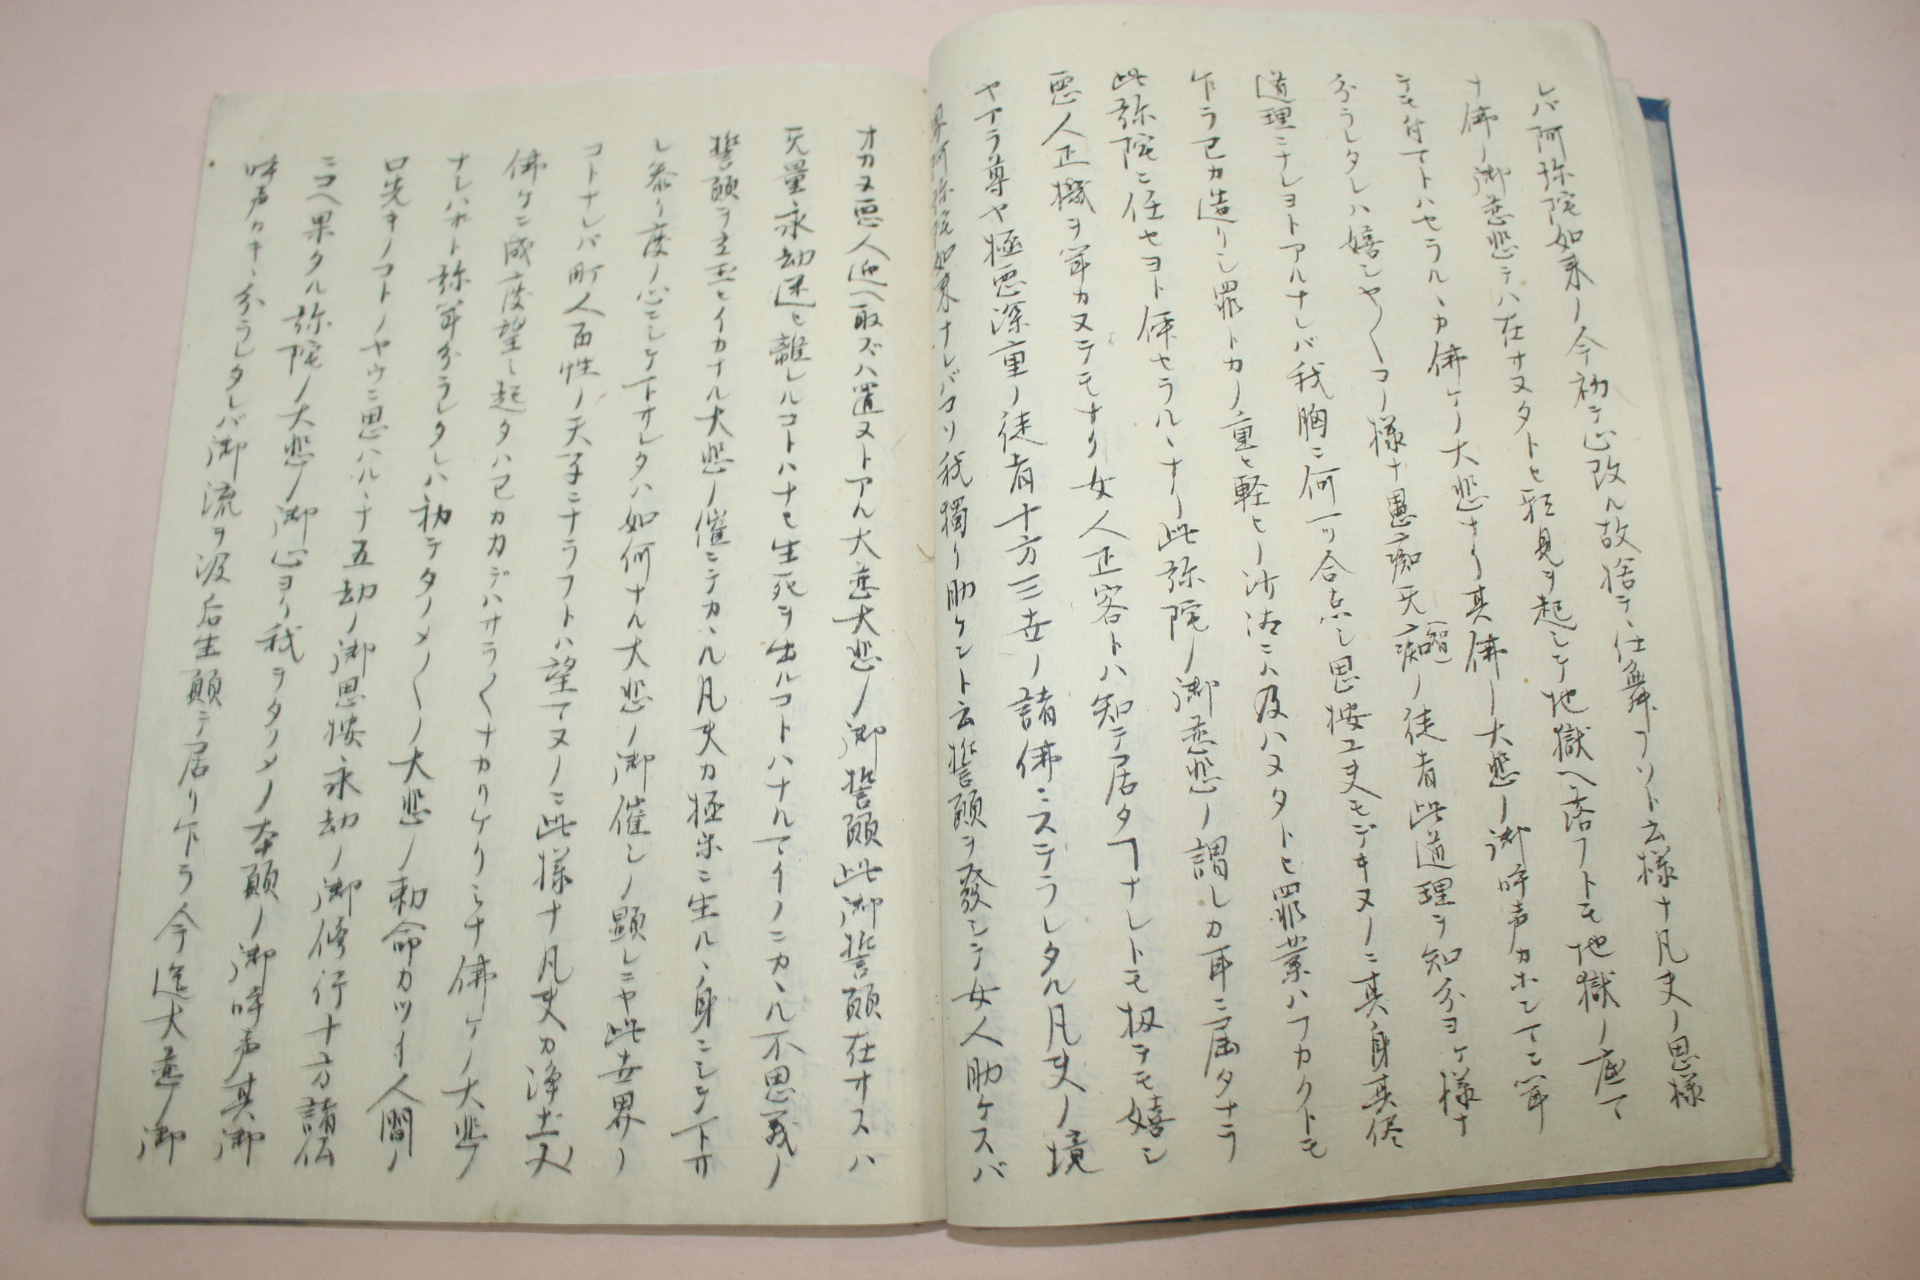 レバ阿弥陀如来ノ今初テ心改ル故捨テ仕舞フソト云様ナ凡夫ノ思様
ナ佛ノ御慈悲テハ在サヌタトヒ邪見ヲ起シテ地獄ヘ落フトモ地獄ノ底マ
テモ付テトハセラルヽカ佛ケノ大悲ナリ其佛ノ大悲ノ御呼声カホンマニ耳
分ラレタレハ嬉シヤ〱コノ様ナ愚痴无智ノ徒者此道理ヲ知分ヨケ様ナ
道理ニナレヨトアルナレバ我胸ニ何一ツ合点シ思按工夫モデキヌノニ其身其侭
乍ラ已カ造リシ罪トカノ重ヒ軽ヒノ沙汰ニハ及ハヌタトヒ罪業ハフカクトモ
此弥陀ニ任セヨト仰セラルヽナリ此弥陀ノ御慈悲ノ謂レカ耳ニ届タナラ
悪人正機ヲ耳カヌテモナリ女人正客トハ知テ居タヿナレトモ扨テモ嬉シ
ヤアラ尊ヤ極悪深重ノ徒者十方三世ノ諸佛ニステラレタル凡夫ノ境
界阿弥陀如来ナレバコソ我獨リ助ケント云誓願ヲ發シテ女人助ケスバ
オカヌ悪人迎ヘ取ズハ置ヌトアル大慈大悲ノ御誓願此御誓願在サスハ
无量永劫迷ヒ離レルコトハナヒ生死ヲ出ルコトハナルマイノニカヽル不思義ノ
誓願ヲ立玉ヒイカナル大悲ノ催ニテカヽル凡夫カ極楽ニ生ルヽ身ニシテ下サ
レ参リ度ノ心ニシテ下サレタハ如何ナル大悲ノ御催シノ顕レニヤ此世界ノ
コトナレバ町人百性ノ天子ニナラフトハ望マヌノニ此様ナ凡夫カ浄土ヘ
佛ケニ成度望ミ起タハ已カカデハサラ〱ナカリケリミナ佛ケノ大悲ノ
ナレハホト弥耳分ラレタレハ初テタノメ〱ノ大悲ノ勅命カツイ人間ノ
口先キノコトノヤウニ思ハルヽナ五劫ノ御思按永劫ノ御修行十方諸仏
ニコヘ果タル弥陀ノ大悲ノ御心ヨリ我ヲタノメノ本願ノ御呼声其御
呼声カキヽ分ラレタレバ御流ヲ汲后生願テ居リ乍ラ今迄大慈ノ御